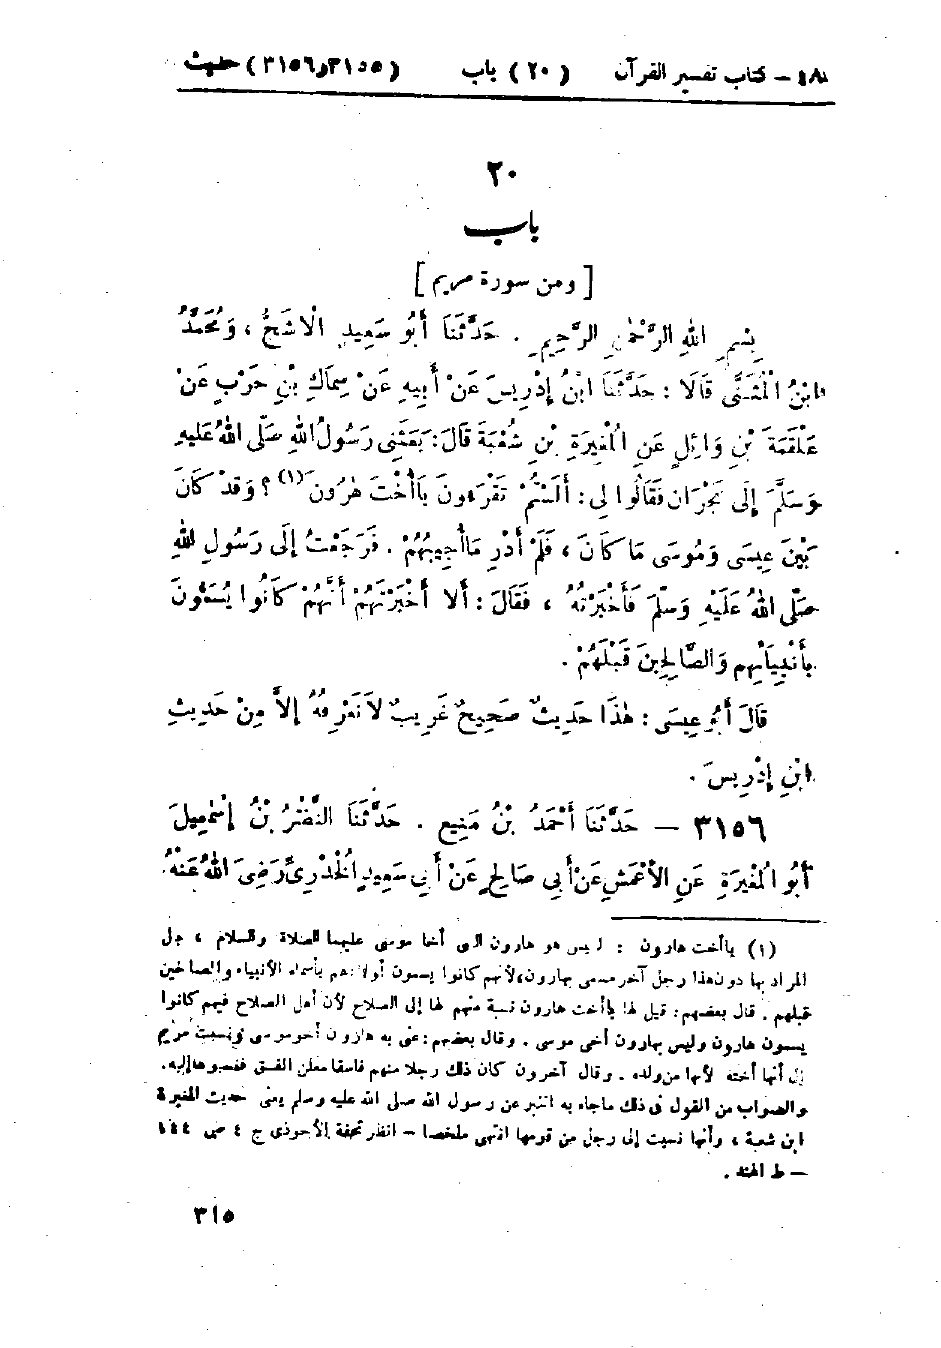 ٤٨ – كتاب تفسير القرآن ( ٢٠ ) باب ( ٣١٥٥ و ٣١٥٦ ) حديث
٢٠
باب
[ ومن سورة مريم ]
بِسْمِ اللهِ الرَّحْمٰنِ الرَّحِيمِ . حَدَّثَنَا أَبُو سَعِيدٍ الْأشَجُّ ، وَمُحَمَّدُ
ابْنُ الْمُثَنَّى قَالَا : حَدَّثَنَا ابْنُ إِدْرِيسَ عَنْ أَبِيهِ عَنْ سِمَاكِ بْنِ حَرْبٍ عَنْ
عَلْقَمَةَ بْنِ وَائِلٍ عَنِ الْمُغِيرَةِ بْنِ شُعْبَةَ قَالَ : بَعَثَنِي رَسُولُ اللهِ صَلَّى اللهُ عَلَيهِ
وَسَلَّمَ إِلَى نَجْرَانَ فَقَالُوا لِي : أَلَسْتُمْ تَقْرَءونَ يَاأُخْتَ هٰرُونَ (١) ؟ وَقَدْ كَانَ
بَيْنَ عِيسَى وَمُوسَى مَا كَانَ ، فَلَمْ أَدْرِ مَاأُجِيبُهُمْ . فَرَجَعْتُ إِلَى رَسُولِ اللهِ
صَلَّى اللهُ عَلَيْهِ وَسَلَّمَ فَأَخْبَرْتُهُ ، فَقَالَ : أَلا أَخْبَرْتَهُمْ أَنَّهُمْ كَانُوا يُسَمُّونَ
بِأَنْبِيَائِهِم وَالصَّالِحِينَ قَبْلَهُمْ .
قَالَ أَبُو عِيسَى : هٰذَا حَدِيثٌ صَحِيحٌ غَرِيبٌ لَا نَعْرِفُهُ إِلَّا مِنْ حَدِيثِ
ابْنِ إِدْرِيسَ .
٣١٥٦ – حَدَّثَنَا أَحْمَدُ بْنُ مَنِيعٍ . حَدَّثَنَا النَّضْرُ بْنُ إِسْمٰعِيلَ
أَبُو الْمُغِيرَةِ عَنِ الْأَعْمَشِ عَنْ أَبِي صَالِحٍ عَنْ أَبِي سَعِيدٍ الْخُدْرِيِّ رَضِيَ اللهُ عَنْهُ
(١) ياأخت هارون : ليس هو هارون النبى أخا موسى عليهما الصلاة والسلام ، بل
المراد بها دون هذا رجل آخر مسمى بهارون، لأنهم كانوا يسمون أولادهم بأسماء الأنبياء والصالحين
قبلهم . قال بعضهم: قيل لها ياأخت هارون نسبة منهم لها إلى الصلاح لأن أهل الصلاح فيهم كانوا
يسمون هارون وليس بهارون أخى موسى . وقال بعضهم : عنى به هارون أخو موسى ونسبت مريم
إلى أنها أخته لأنها من ولده . وقال آخرون كان ذلك رجلا منهم فاسقا معلن الفسق فنسبوها إليه .
والصواب من القول فى ذلك ماجاء به الخبر عن رسول الله صلى الله عليه وسلم يعنى حديث المغيرة
ابن شعبة ، وأنها نسبت إلى رجل من قومها انتهى ملخصا – انظر تحفة الأحوذى ج ٤ ص ١٤٤
– ط الهند .
٣١٥